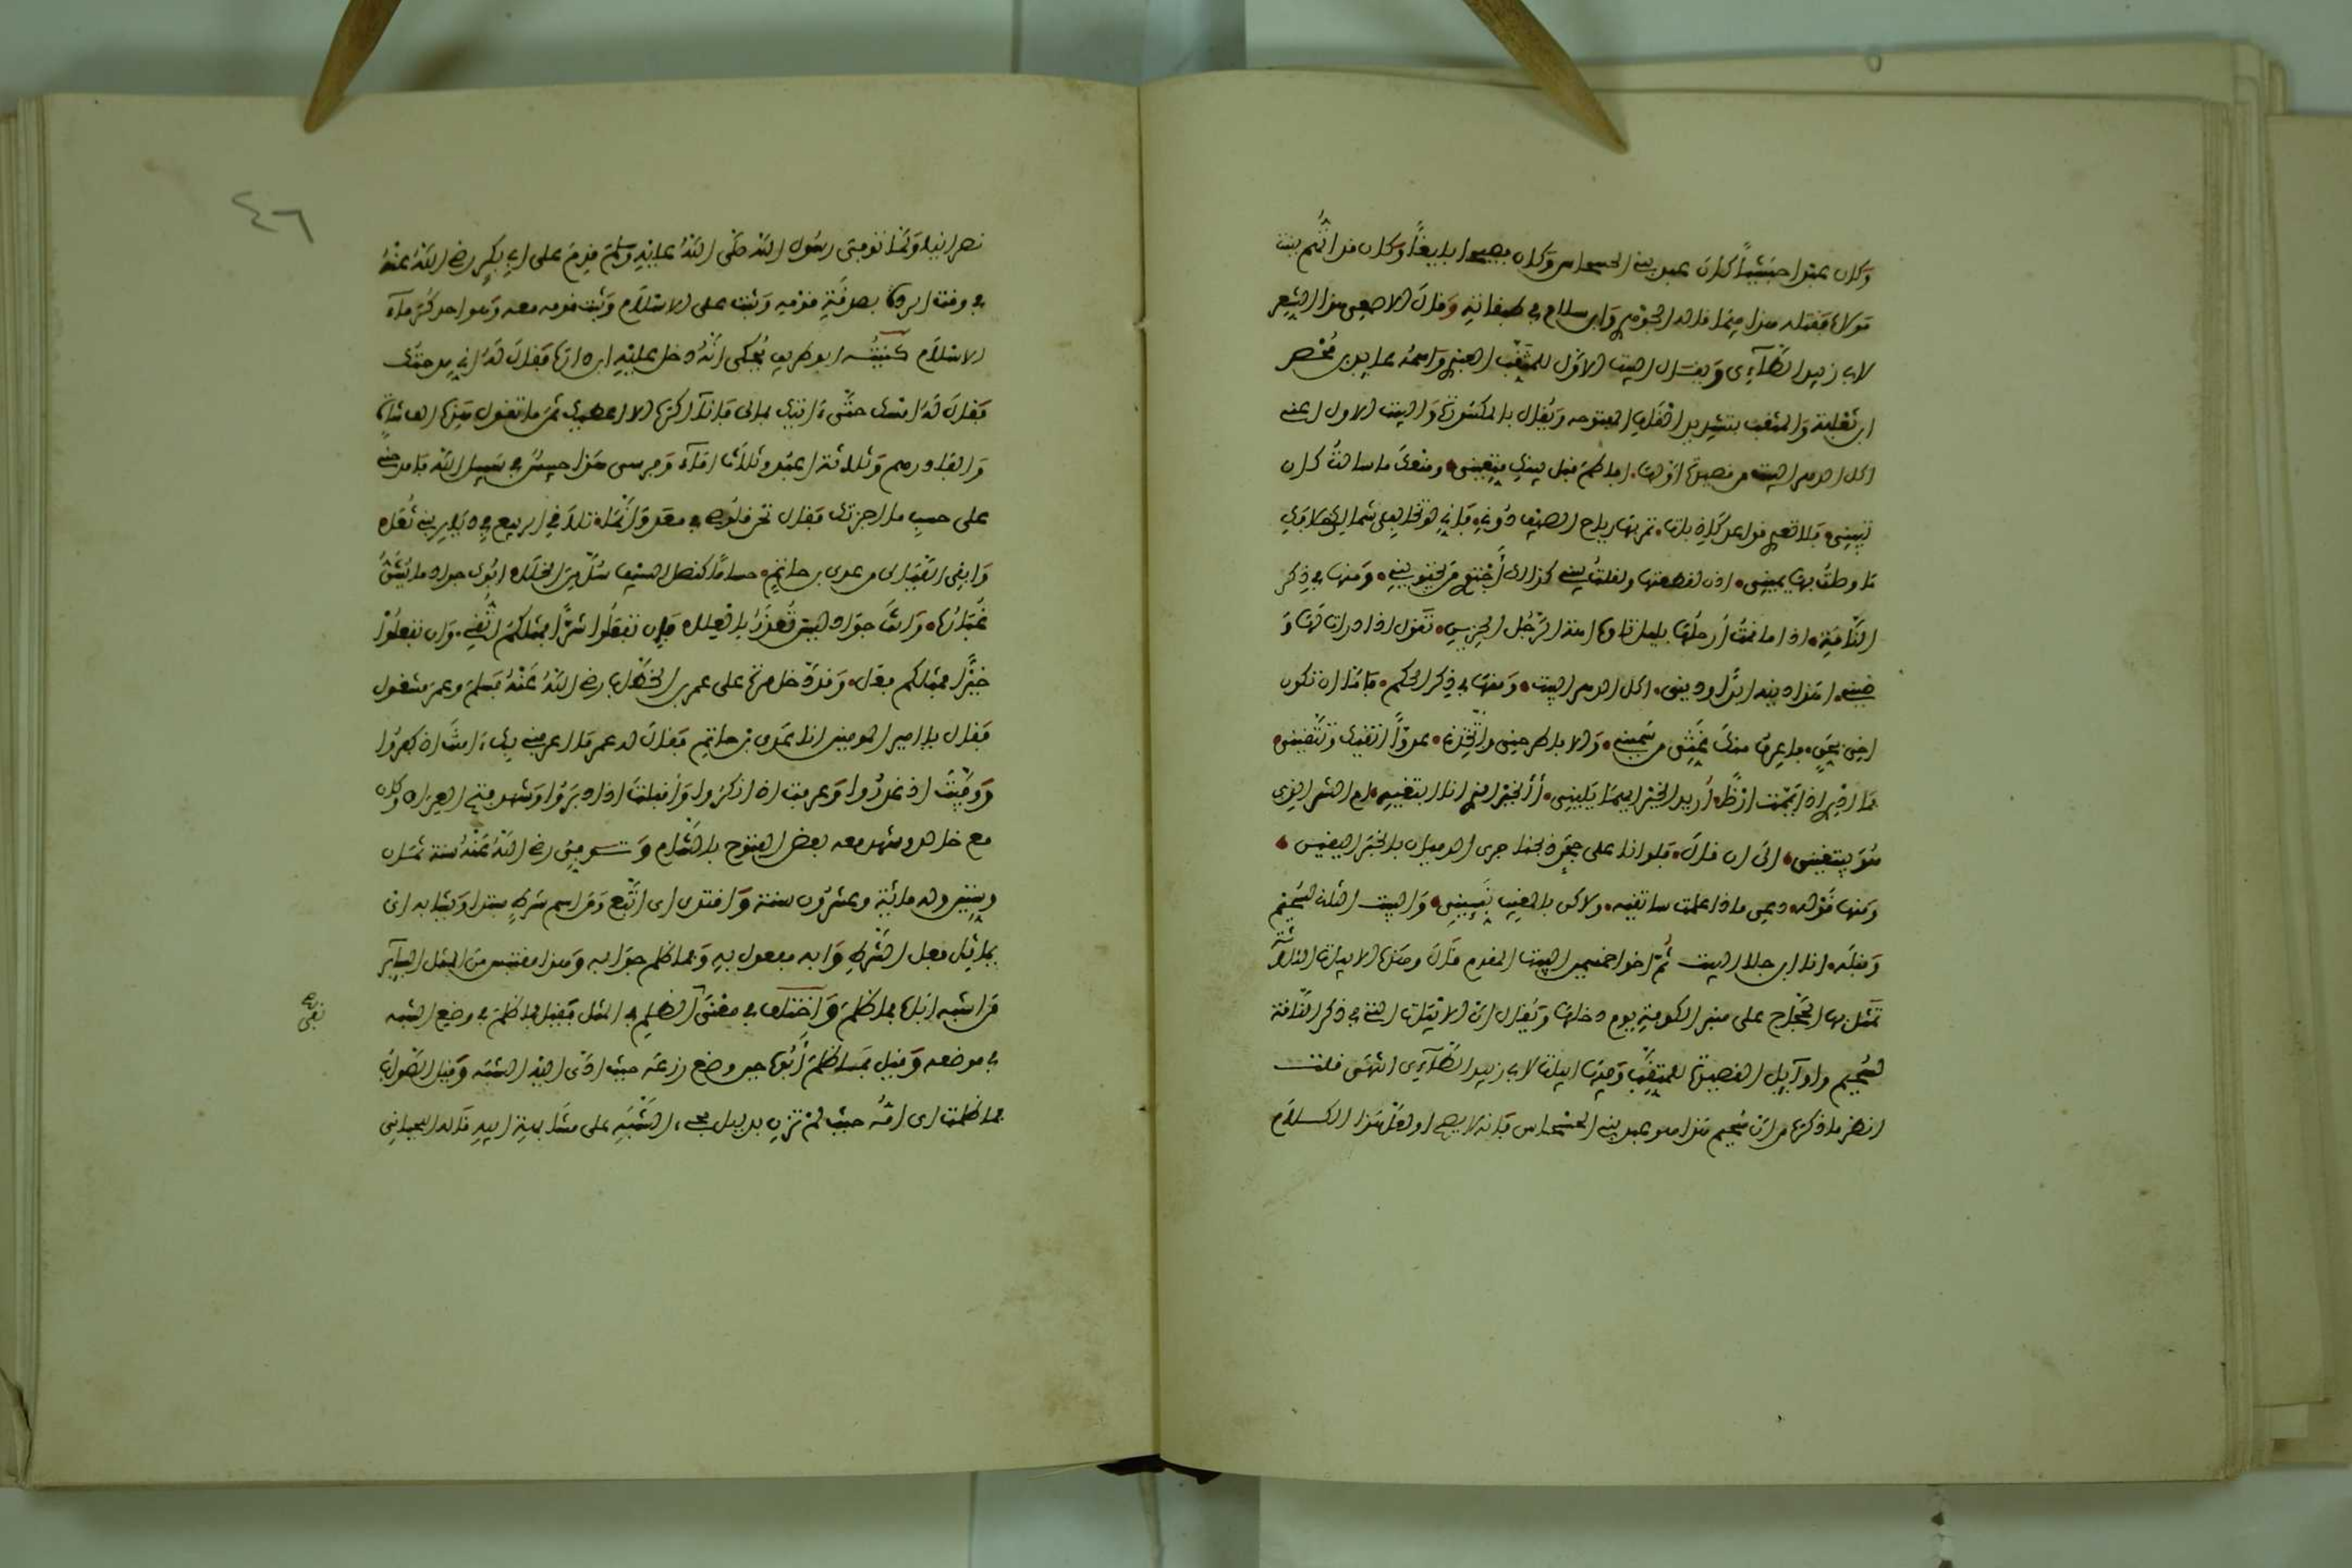 وكان عبدا حبشيا كان عبد بني الحسحاس وكان فصيحا بليغا وكان قد اتهم ببنت
مولاه فقتله هذا فيما قاله الجوهري وابن سلام في طبقاته وقال الاصمعي هذا الشعر
لابي زبيد الطآءي ويقال البيت الاول للمثقب العبدي واسمه عايد بن محصن
ابن ثعلبة والمثقب بتشديد القاف المفتوحه ويقال بالمكسورة والبيت الاول اعني
اكل الدهر البيت من قصيدة اولها افاطم قبل بينك متعيني ومنعك ما سالت كان
تبيني فلا تعدي مواعد كاذبات تمر بها رياح الصيف دوني فاني لو تخالفني شمالي خلافك
ما وصلت بها يميني اذن لقطعتها ولقلت بيني كذالك اجتوي من يجتويني ومنها في ذكر
الناقة اذا ما قمت ارحلها بليل تاوه اهة الرجل الحزين تقول اذا درات لها و
ضيني اهذا دينه ابدا وديني اكل الدهر البيت ومنها في ذكر الحكم فاما ان تكون
اخي بحق فاعرف منك غثي من سميني والا فاطرحني واتخذني عدوا اتقيك وتتقيني
فما ادري اذا يممت ارضا اريد الخير ايهما يليني أالخير الذي انا ابتغيه ام الشر الذي
هو يبتغيني الى ان قال فلو انا على حجر ذبحنا جرى الدميان بالخبر اليقين
ومنها قوله دعي ماذا علمت ساتقيه ولاكن بالمغيب نبيني والبيت الثالث لسحيم
وقبله انا ابن جلا البيت ثم اخوا خمسين البيت المقدم قال وهذه الابيات الثلاثة
تمثل بها الحجاج على منبر الكوفة يوم دخلها ويقال ان الابيات التي في ذكر الناقة
لسحيم واوآيل القصيدة للمثقب وفيها ابيات لابي زبيد الطآءي انتهى قلت
انظر ما ذكره من ان سحيم هذا هو عبد بني الحسحاس فانه لا يصح اول هذا الكلام
٤٦
نصرانيا ولما توفي رسول الله صلى الله عليه وسلم قدم على ابي بكر رضي الله عنه
في وقت الردة بصدقة قومه وثبت على الاسلام وثبت قومه معه وهو احد كرمآء
الاسلام كنيته ابو طريف يحكى انه دخل عليه ابن دارة فقال له اني مدحتك
فقال له امسك حتى ءاتيك بمالي فانآ اكره الا اعطيك ثمن ما تقول هذه الف شاة
والف درهم وثلاثة اعبد وثلاث امآء وفرسي هذا حبيس في سبيل الله فامدحني
على حسب ما اجزتك فقال تحن قلوصي في معد وانما تلاقي الربيع في ديار بني ثعل
وابقى الليالي من عدي بن حاتم حساما كنصل السيف سل من الخلل ابوك جواد ما يشق
غباره وانت جواد ليس تعذر بالعلل فان تفعلوا شرا فمثلكم اتقى وان تفعلوا
خيرا فمثلكم فعل وقد دخل مرة على عمر بن الخطاب رضي الله عنه فسلم وعمر مشغول
فقال يا امير المومنين انا عدي بن حاتم فقال له عمر ما اعرفني بك ءامنت اذ كفروا
ووفيت اذ غدروا وعرفت اذ انكروا واقبلت اذ ادبروا وشهد فتح العراق وكان
مع خالد وشهد معه بعض الفتوح بالشام وتوفي رضي الله عنه سنة ثمان
وستين وله مائة وعشرون سنة واقتدى اى اتبع ومن اسم شرط مبتدا ويشابه اى
يماثل فعل الشرط وابه مفعول به وفما ظلم جوابه وهذا مقتبس من المثل السآير
من اشبه اباه فما ظلم واختلف في معنى الظلم في المثل فقيل فما ظلم في وضع الشبه
في موضعه وقيل فما ظلم ابوه حين وضع زرعه حيث ادى اليه الشبه وقيل الصواب
فما ظلمت اى امه حيث لم تزن بدليل مجيء الشبه على مشابهة ابيه قاله اللحياني